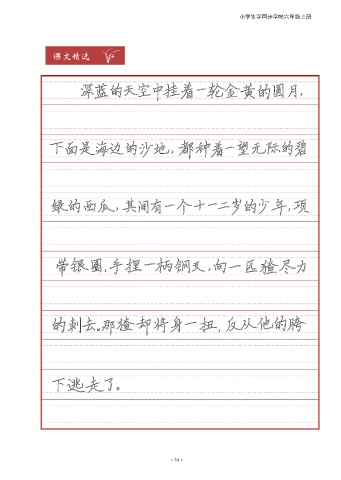 小学生字同步字帖六年级上册
课文精选
深蓝的天空中挂着一轮金黄的圆月,
下面是海边的沙地,都种着一望无际的碧
绿的西瓜,其间有一个十一二岁的少年,项
带银圈,手捏一柄钢叉,向一匹猹尽力
的刺去。那猹却将身一扭,反从他的胯
下逃走了。